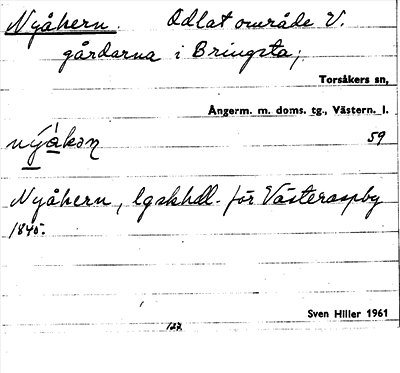 Nyåkern. Odlat område V.
gårdarna i Bringsta;
Torsåkers sn,
Ångerm. m. doms. tg., Västern. l.
59
Nyåkern, lgskhdl. för Västeraspby
1845.
Sven Hiller 1961
127